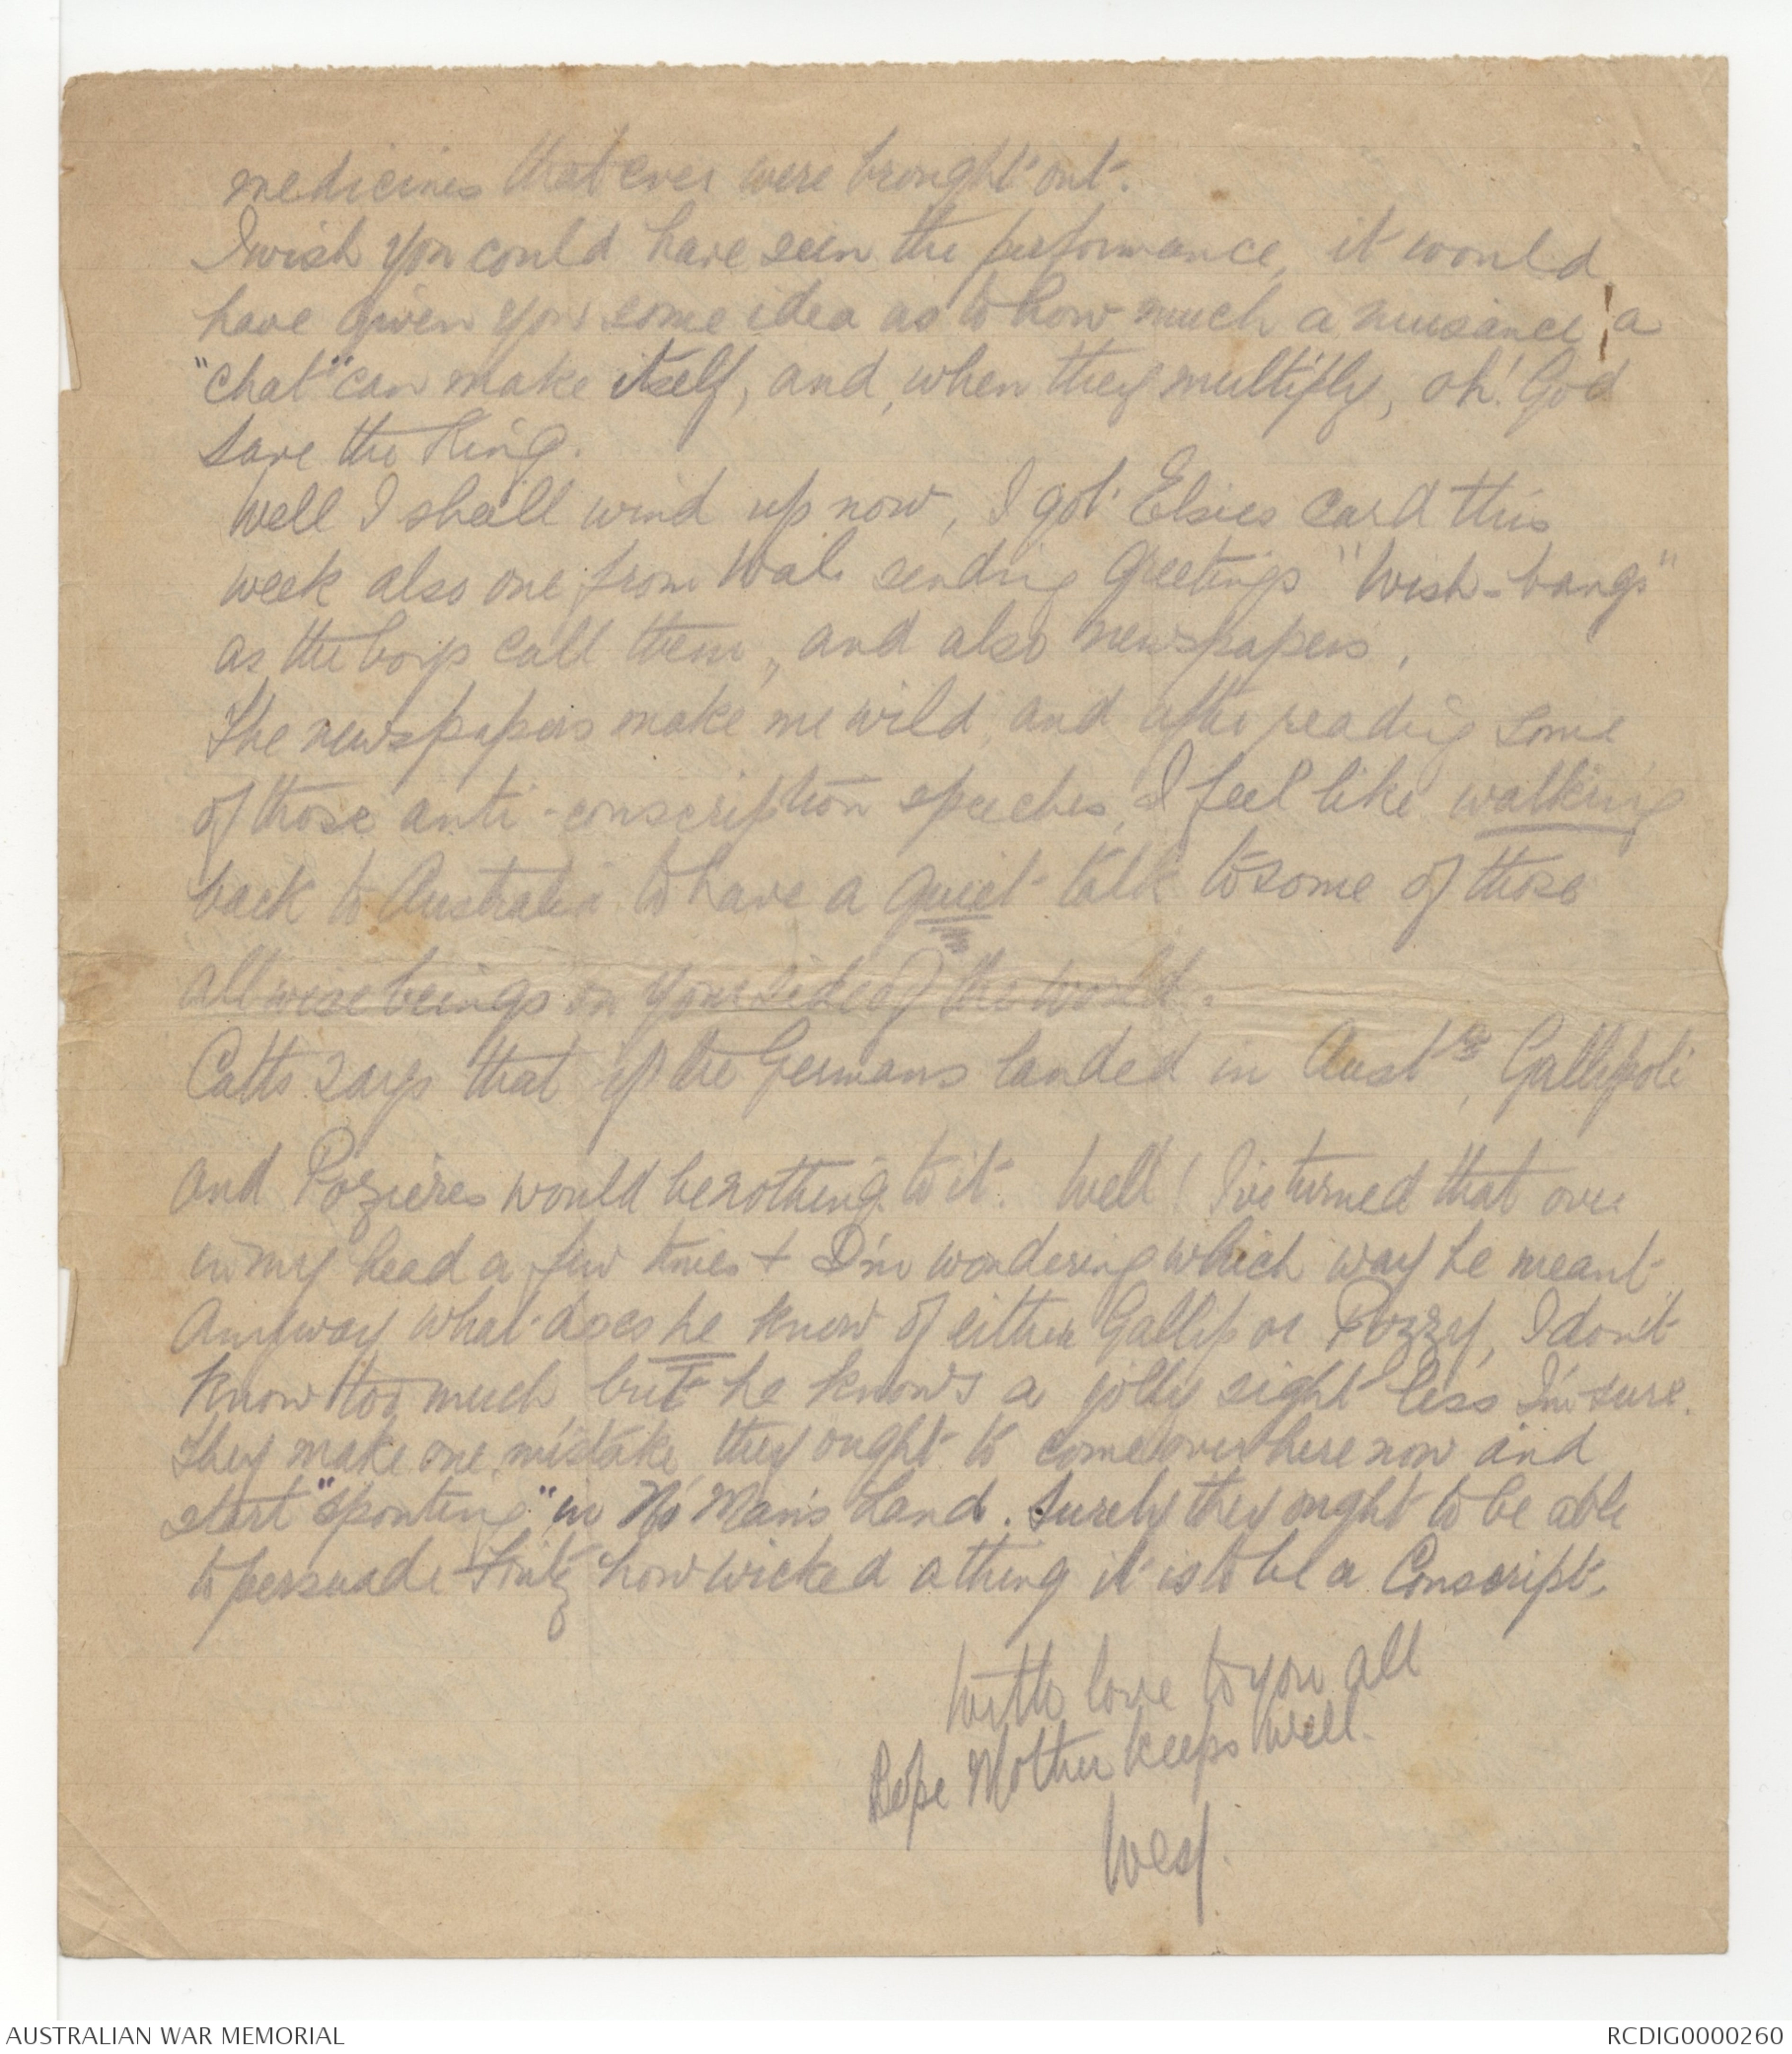 medicines that ever were brought out.
I wish you could have seen the performance, it would
have given you some idea as to how much a nuisance a
"chat" can make itself, and, when they multiply, oh! God
save the King.
Well I shall wind up now, I got Elsies card this
week also one from Wal. sending greetings "Wish-bangs"
as the boys call them, and also newspapers.
The newspapers make me wild, and after reading some
of those anti-conscription speeches, I feel like walking
back to Australia to have a quiet talk to some of those
all wise beings on your side of the world.
Catts says that if the Germans landed in Austla, Gallipoli
and Pozieres would be nothing to it. Well! I've turned that over
in my head a few times + I'm wondering which way he meant.
Anyway what does he know of either Gallip or Pozzy, I don't
know too much but he knows a jolly sight less I'm sure.
They make one mistake, they ought to come over here now and
start "spouting" in No Man's Land. Surely they ought to be able
to persuade Fritz how wicked a thing it is to be a Conscript.
With love to you all
Hope Mother keeps well.
Wes.
AUSTRALIAN WAR MEMORIAL
RCDIG0000260